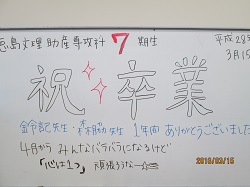 徳島文理 助産専攻科 7期生
平成28年
3月15
祝 卒業
鈴記先生・森脇先生 1年間 ありがとうございました
4月から みんなバラバラになるけど
「心は1つ」 頑張ろうな
2016/03/15